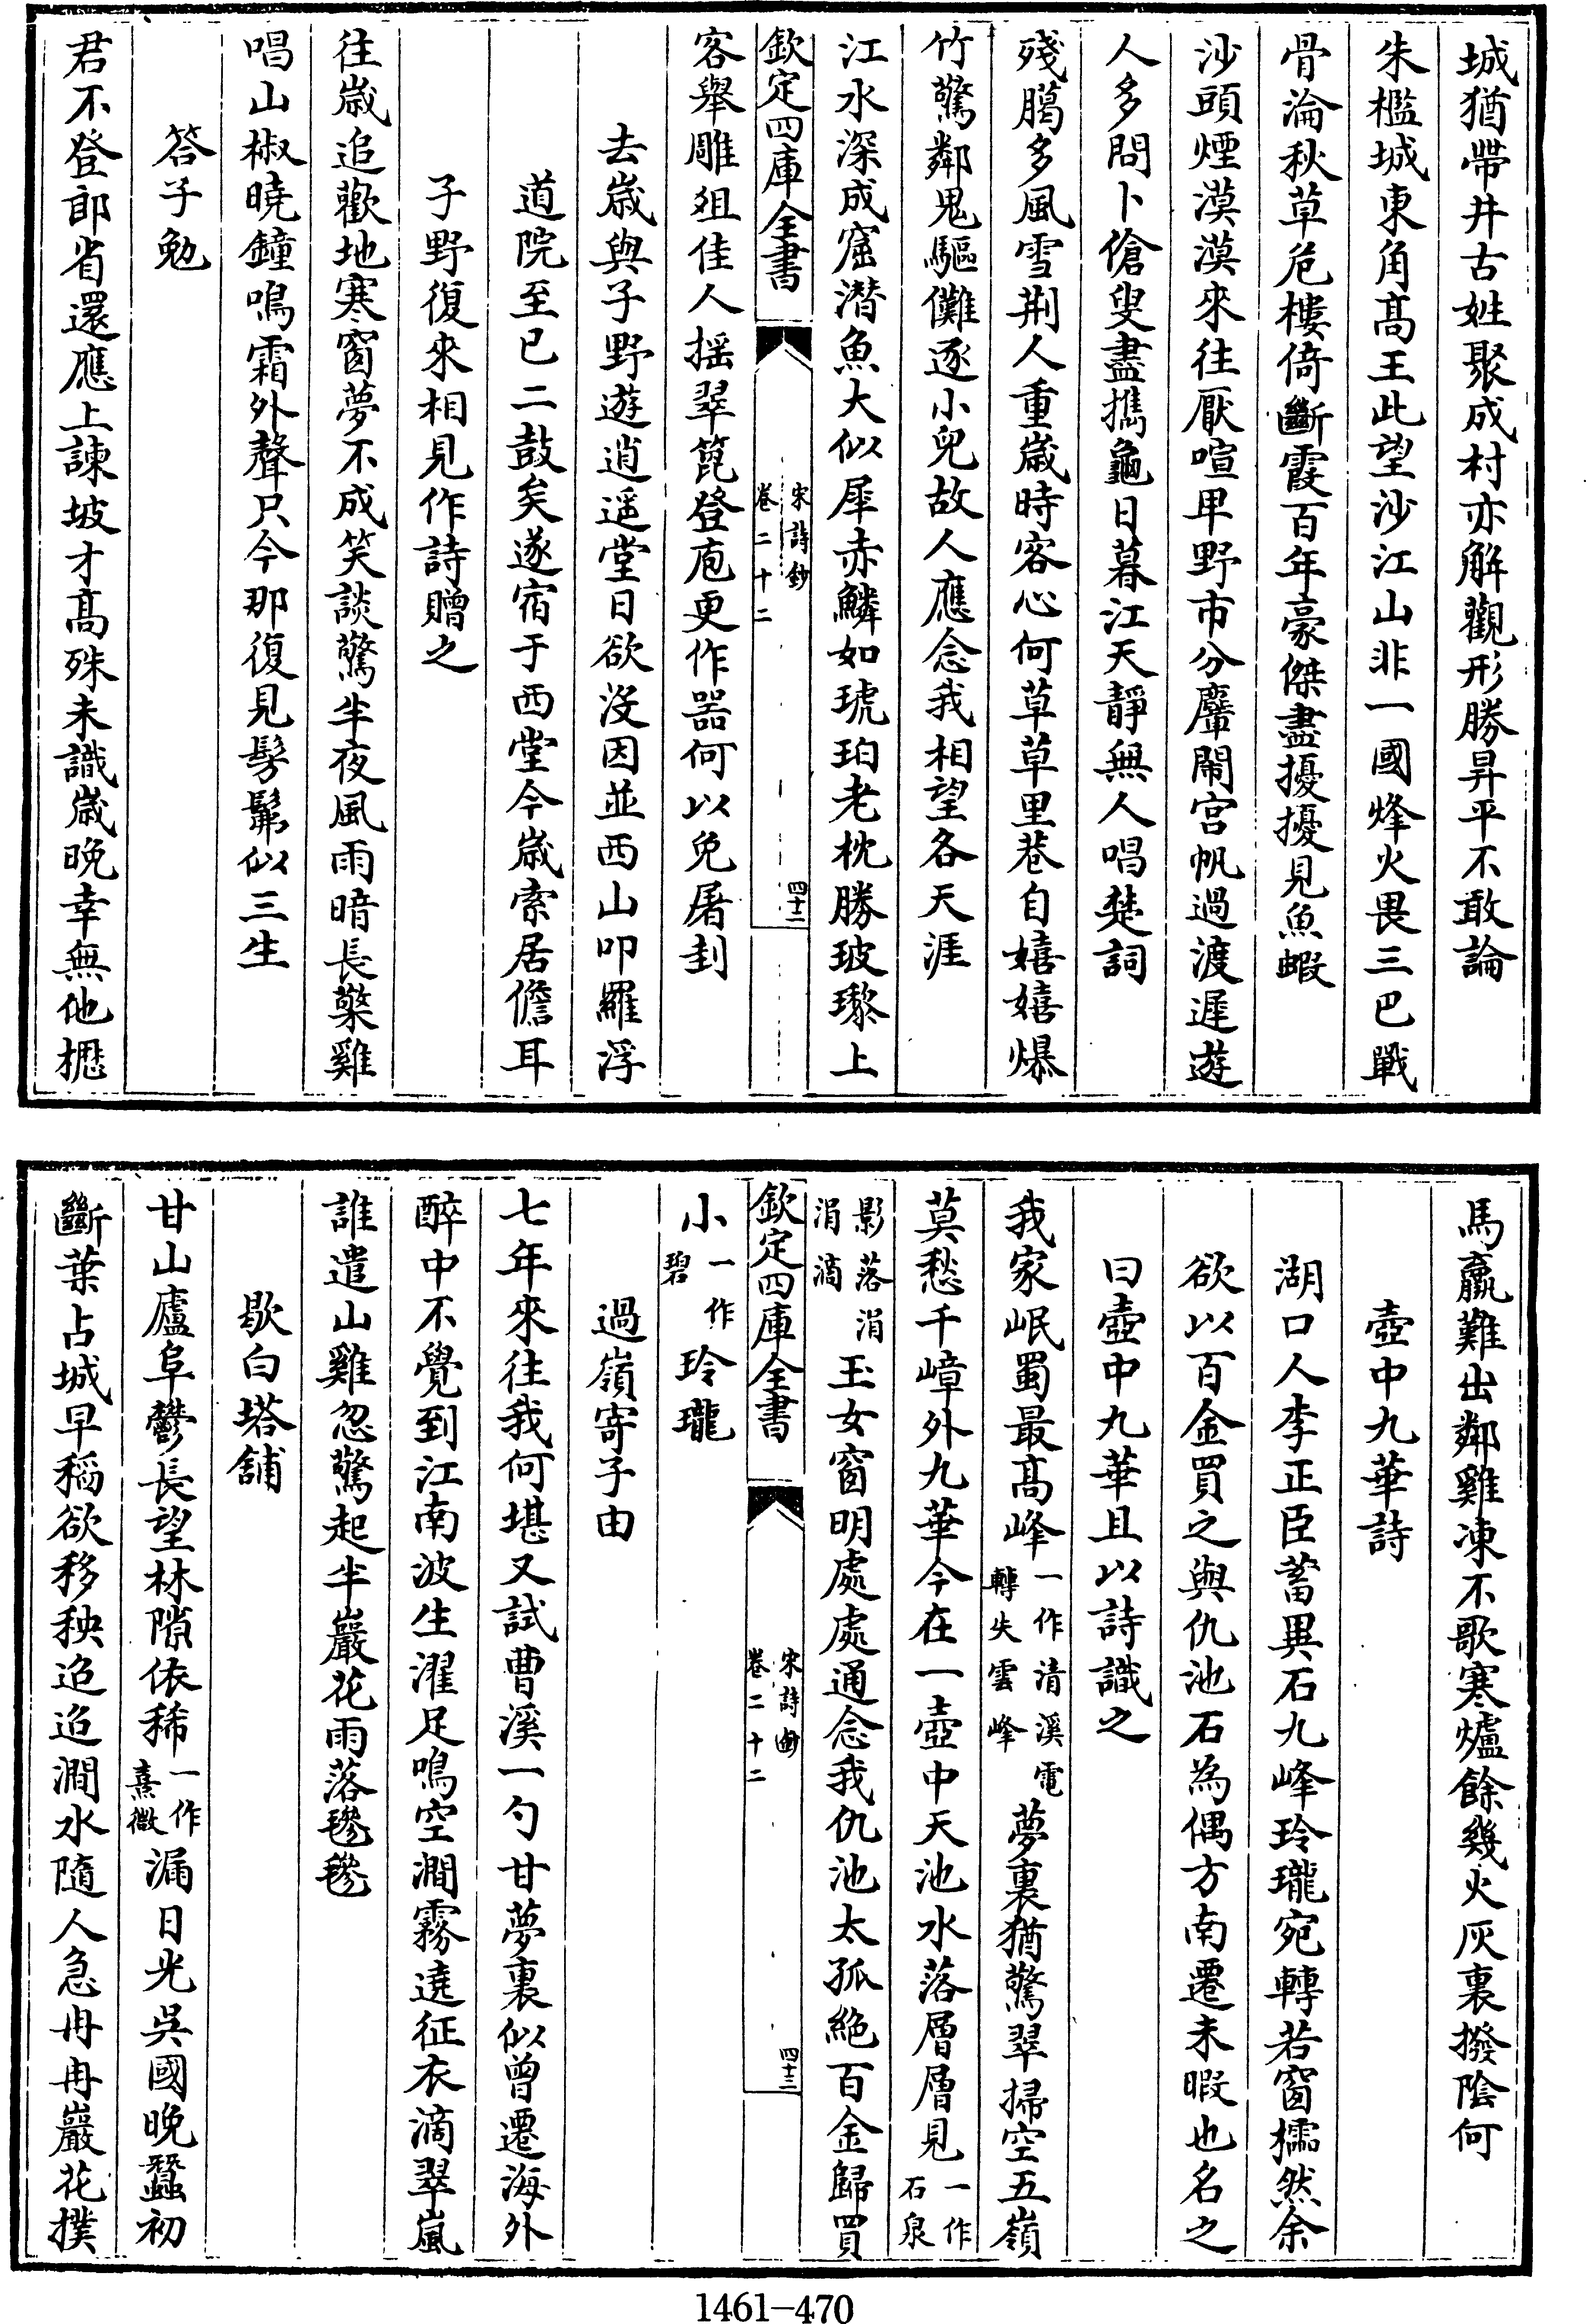 城猶帶井古姓聚成村亦解觀形勝昇平不敢論
朱檻城東角髙王此望沙江山非一國烽火畏三巴戰
骨淪秋草危樓倚斷霞百年豪傑盡擾擾見魚蝦
沙頭煙漠漠來往厭喧卑野市分麞鬧宫帆過渡遲遊
人多問卜傖叟盡擕龜日暮江天靜無人唱楚詞
殘臈多風雪荆人重歳時客心何草草里巷自嬉嬉爆
竹驚鄰鬼驅儺逐小兒故人應念我相望各天涯
江水深成窟潜魚大似犀赤鱗如琥珀老枕勝玻瓈上
欽定四庫全書
宋詩鈔
卷二十二
四十二
客舉雕俎佳人揺翠箆登庖更作器何以免屠刲
去歳與子野遊逍遥堂日欲沒因並西山叩羅浮
道院至已二鼓矣遂宿于西堂今歳索居儋耳
子野復來相見作詩贈之
往歳追歡地寒窗夢不成笑談驚半夜風雨暗長檠雞
唱山椒曉鐘鳴霜外聲只今那復見髣髴似三生
答子勉
君不登郎省還應上諫坡才髙殊未識歳晚幸無他櫪
馬羸難出鄰雞凍不歌寒爐餘幾火灰裏撥陰何
壺中九華詩
湖口人李正臣蓄異石九峰玲瓏宛轉若窗櫺然余
欲以百金買之與仇池石為偶方南遷未暇也名之
曰壺中九華且以詩識之
我家岷蜀最髙峰一作清溪電轉失雲峰夢裏猶驚翠掃空五嶺
莫愁千嶂外九華今在一壺中天池水落層層見一作石泉
影落涓涓滴玉女窗明處處通念我仇池太孤絶百金歸買
欽定四庫全書
宋詩鈔
卷二十二
四十三
小一作碧玲瓏
過嶺寄子由
七年來往我何堪又試曹溪一勺甘夢裏似曾遷海外
醉中不覺到江南波生濯足鳴空澗霧遶征衣滴翠嵐
誰遣山雞忽驚起半巖花雨落毿毿
歇白塔舖
甘山廬阜鬱長望林隙依稀一作熹微漏日光吳國晚蠶初
斷葉占城早稻欲移秧迢迢澗水隨人急冉冉巖花撲
1461-470